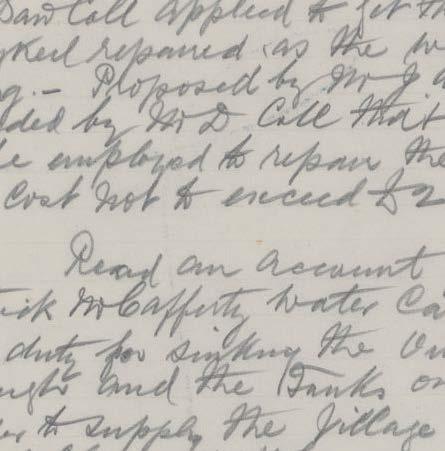 Dan Coll applied to get th
rked repaired as the w
g. – Proposed by Mr J
ded by Mr D Coll that
be employed to repair the
cost not to exceed £2
Read an account
rick McCafferty water Ca
duty for sinking the
ught and the Tanks on
to supply the Village